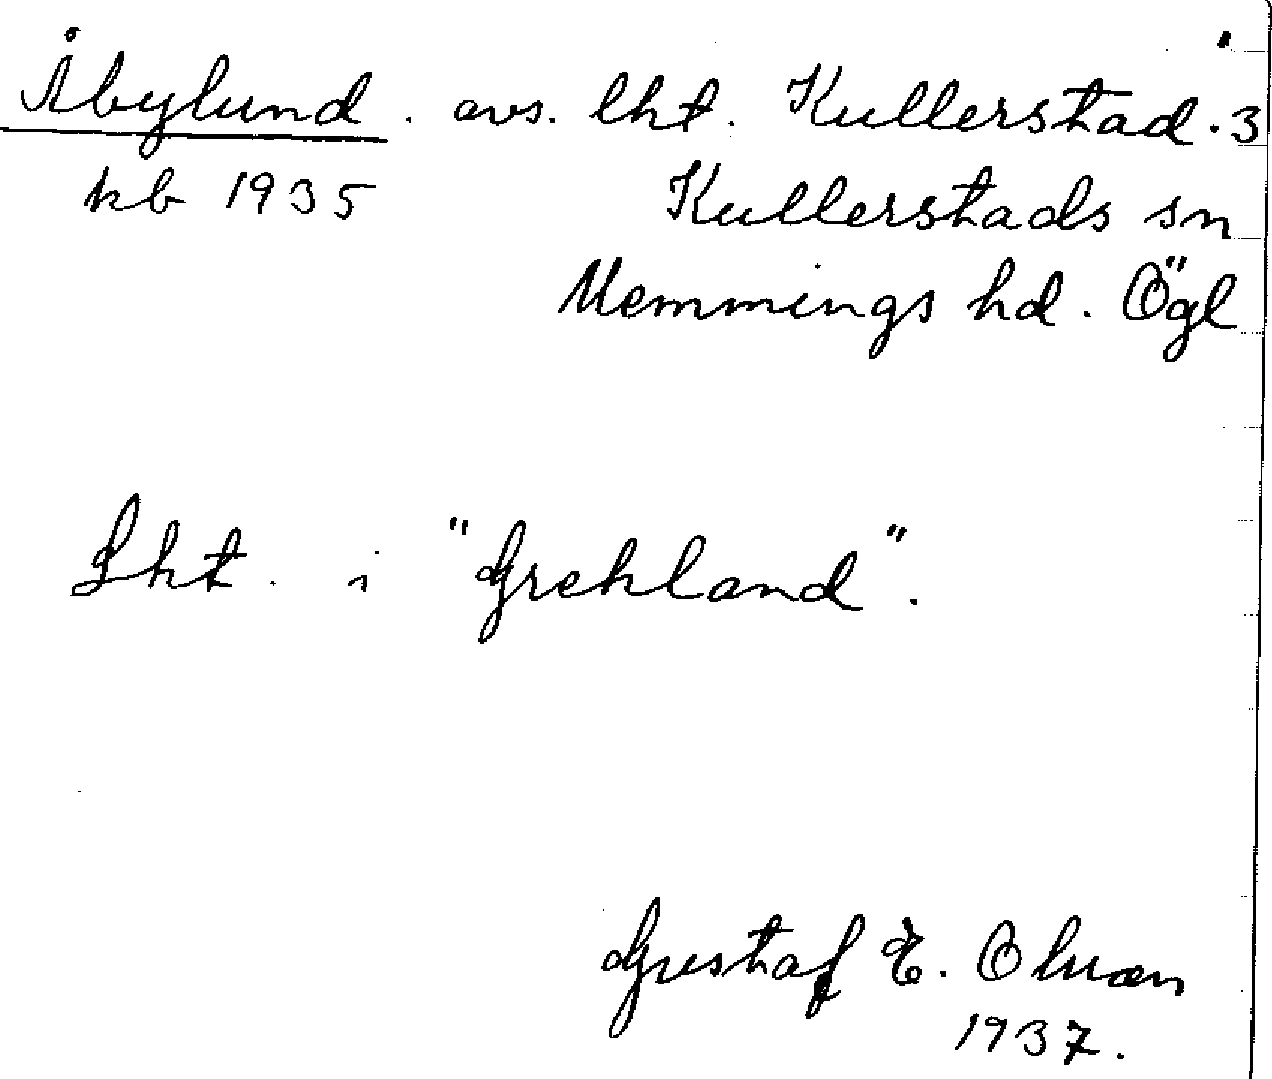 Åbylund. avs. lht. Kullerstad. 3
kb 1935 Kullerstads sn
Memmings hd. Ögl
Lht. i "Grekland".
Gustaf E. Olsson
1937.